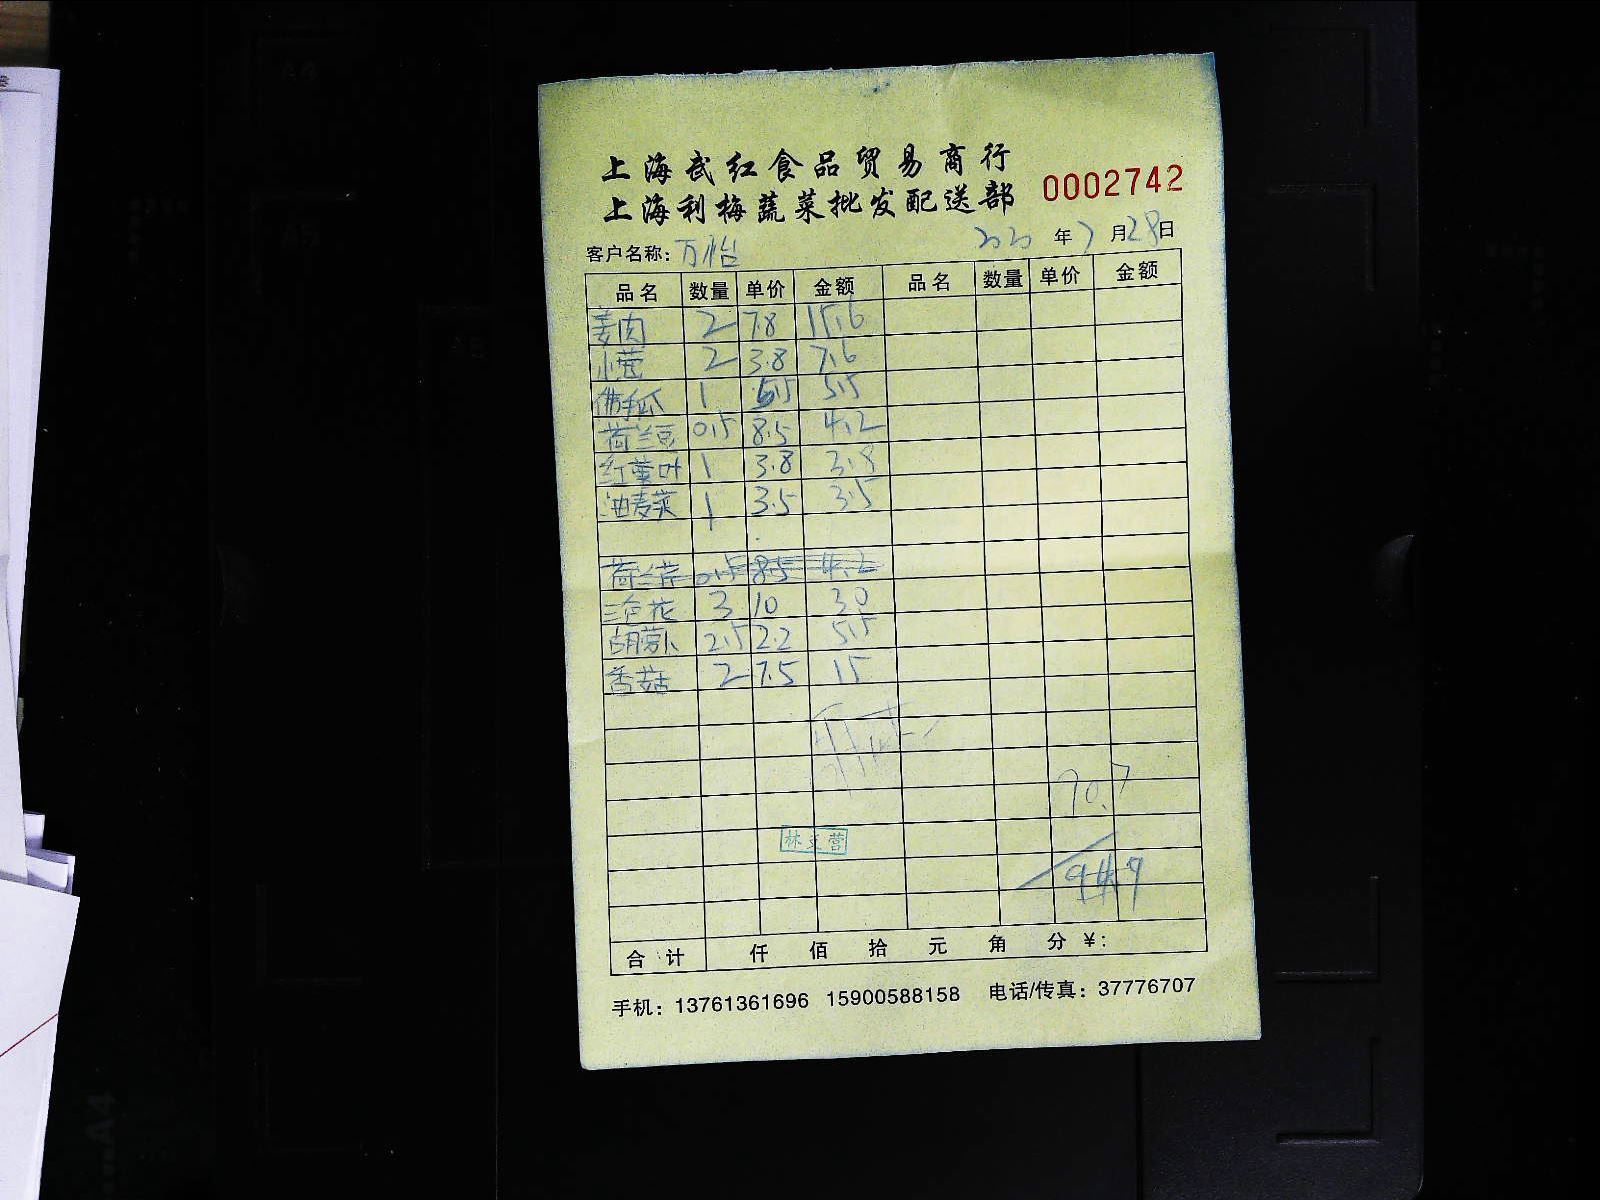 上海武红食品贸易商行
上海利梅蔬菜批发配送部
0002742
客户名称: 万怡 2020 年 7 月 28 日
品名 数量 单价 金额 品名 数量 单价 金额
姜肉 2 7.8 15.6
小葱 2 3.8 7.6
佛手瓜 1 5.5 5.5
荷兰豆 0.5 8.5 4.2
红薯叶 1 3.8 3.8
油麦菜 1 3.5 3.5
荷兰芹 0.5 8.5 4.2
三色花 3 10 30
胡萝卜 2.5 2.2 5.5
香菇 2 7.5 15
90.7
林 营
94.9
合计 仟 佰 拾 元 角 分 ¥:
手机: 13761361696 15900588158 电话/传真: 37776707
A4